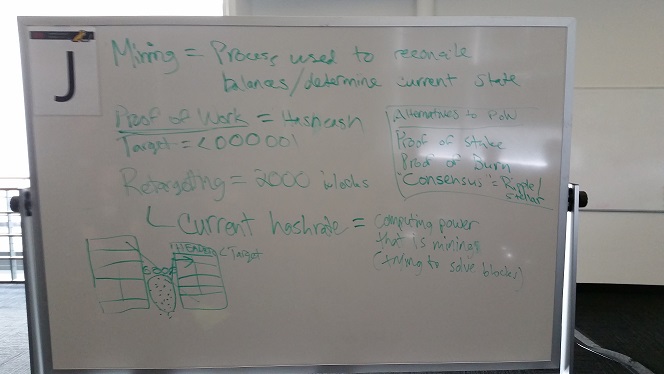 J
Mining = Process used to reconcile
balances/determine current state
Proof of Work = Hashcash
Target = <000001
Retargeting = 2000 blocks
Current hashrate = computing power
that is mining
(trying to solve blocks)
Alternatives to PoW
Proof of stake
Proof of Burn
"Consensus" = Ripple/
Stellar
HEADER
<Target